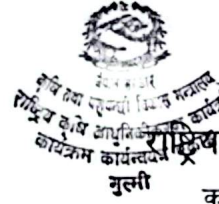 नेपाल सरकार
कृषि तथा पशुपन्छी विकास मन्त्रालय
राष्ट्रिय कृषि आधुनिकीकरण
कार्यक्रम कार्यन्वयन
राष्ट्रिय
गुल्मी